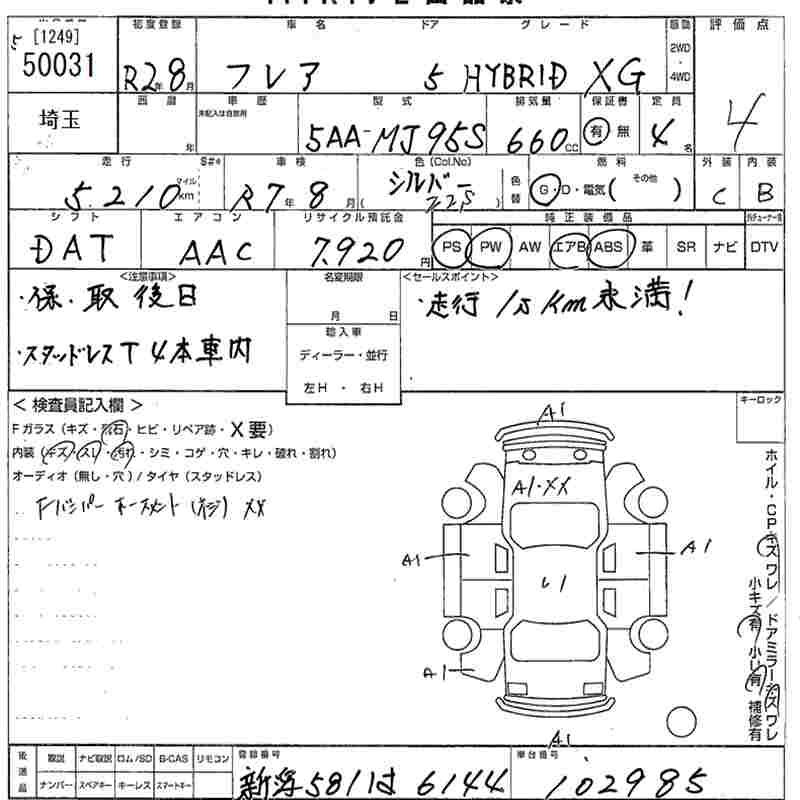 5 [1249]
50031
初度登録 車名 ドア グレード 駆動 評価点
R2年8月 フレア 5 HYBRID XG 2WD・4WD 4
埼玉
西暦 車歴 型式 排気量 保証書 定員
年 未記入は自家用 5AA-MJ95S 660cc 有 無 4名
走行 S#* 車検 色(Col.No) 燃料 外装 内装
5,210 マイル km R7年8月 ( シルバー Z2S ) 色替 G・D・電気( その他 ) C B
シフト エアコン リサイクル預託金 純正装備品
DAT AAC 7,920円 PS PW AW エアB ABS 革 SR ナビ DTV
<注意事項> 名変期限 <セールスポイント>
・保・取 後日 月 日 ・走行 1万km未満!
・スタッドレスT 4本車内
ディーラー・並行
左H・右H
キーロック
< 検査員記入欄 >
Fガラス (キズ・飛石・ヒビ・リペア跡・X要)
内装 (キズ・スレ・汚れ・シミ・コゲ・穴・キレ・破れ・割れ)
オーディオ (無し・穴) / タイヤ (スタッドレス)
Fバンパー XX
A1
A1・XX
A1 A1
A1
A1
ホイル・CPキズワレ/ドアミラーキズワレ
小キズ有 小凹有 補修有
後送品 取説 ナビ取説 ロム/SD B-CAS リモコン 登録番号 車台番号
ナンバー スペアキー キーレス スマートキー 581 は 6144 102985